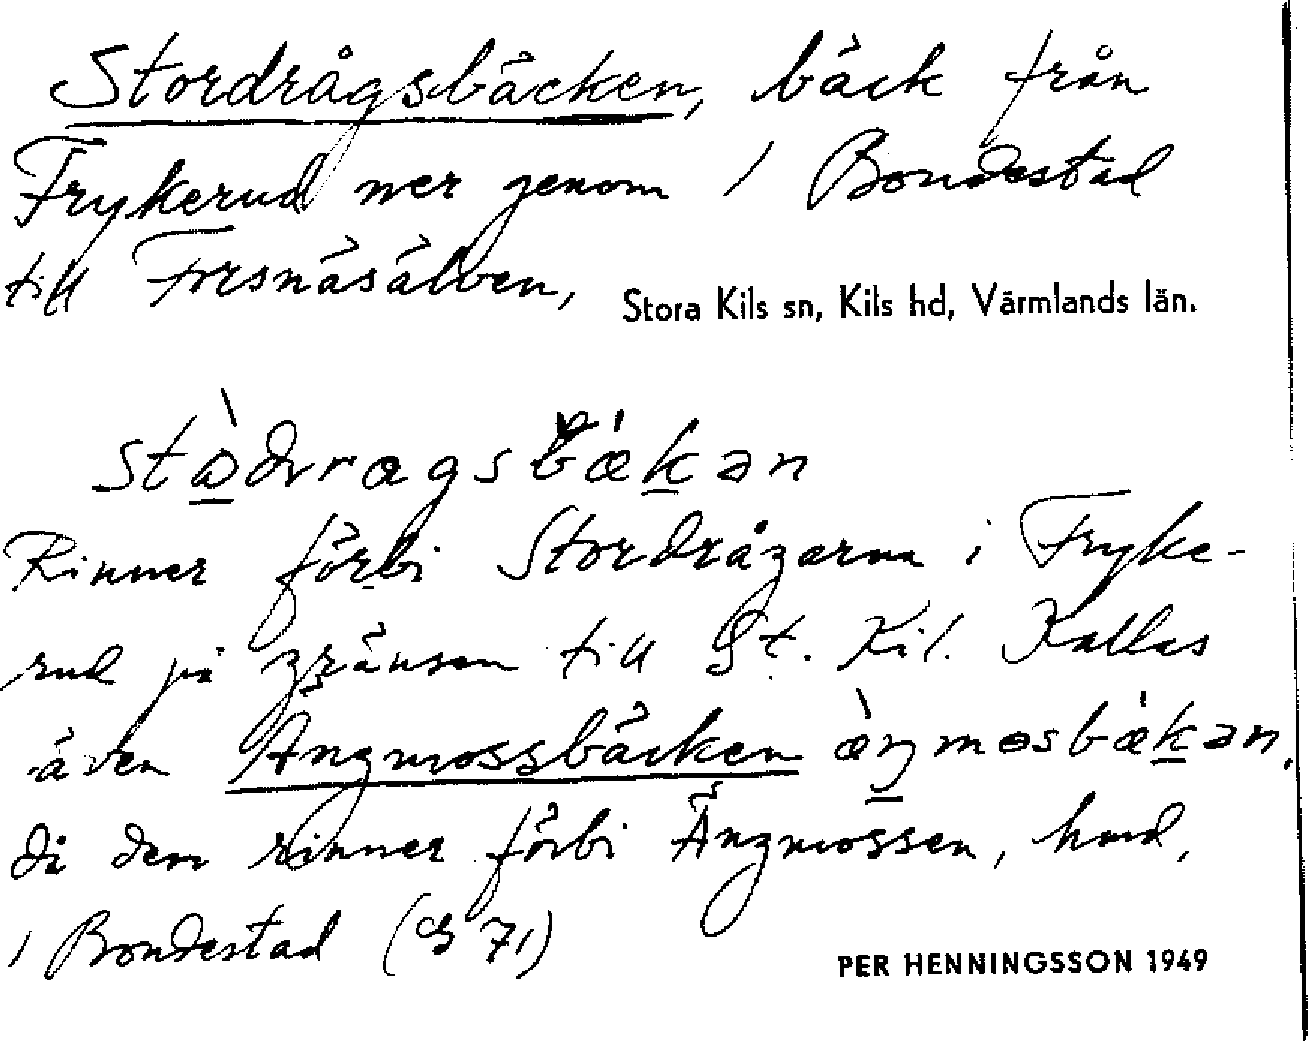 Stordrågsbäcken, bäck från
Frykerud ner genom / Bondestad
till Frosnäsälven,
Stora Kils sn, Kils hd, Värmlands län.
Rinner förbi Stordrågarna i Fryke-
rud på gränsen till St. Kil. Kallas
även Ängmossbäcken
då den rinner förbi Ängmossen,
/ Bondestad
PER HENNINGSSON 1949